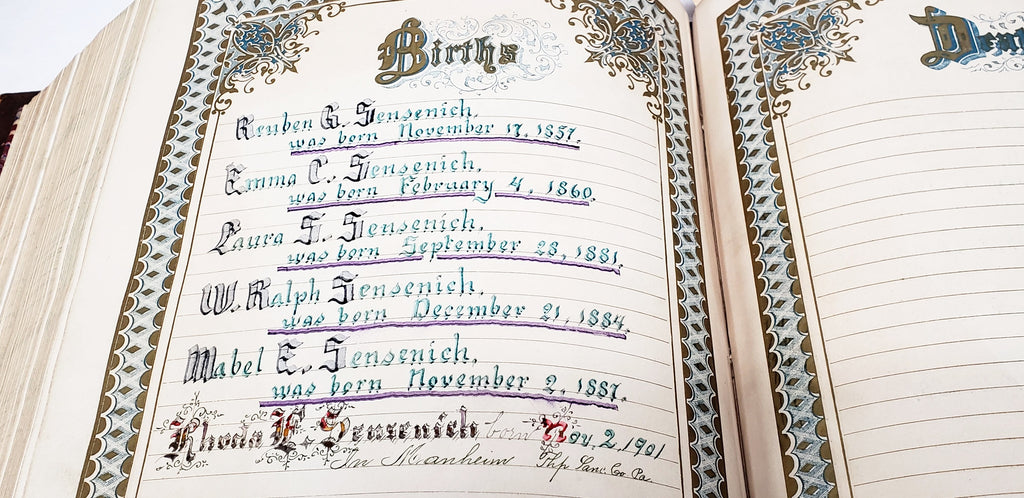 Births
Reuben G. Sensenich,
was born November 17, 1857.
Emma C. Sensenich,
was born February 4, 1860.
Laura S. Sensenich,
was born September 28, 1881.
W. Ralph Sensenich,
was born December 21, 1884.
Mabel E. Sensenich,
was born November 2, 1887.
Rhoda E. Sensenich born Nov. 2, 1901
In Manheim Thp Lanc. Co Pa
Deat